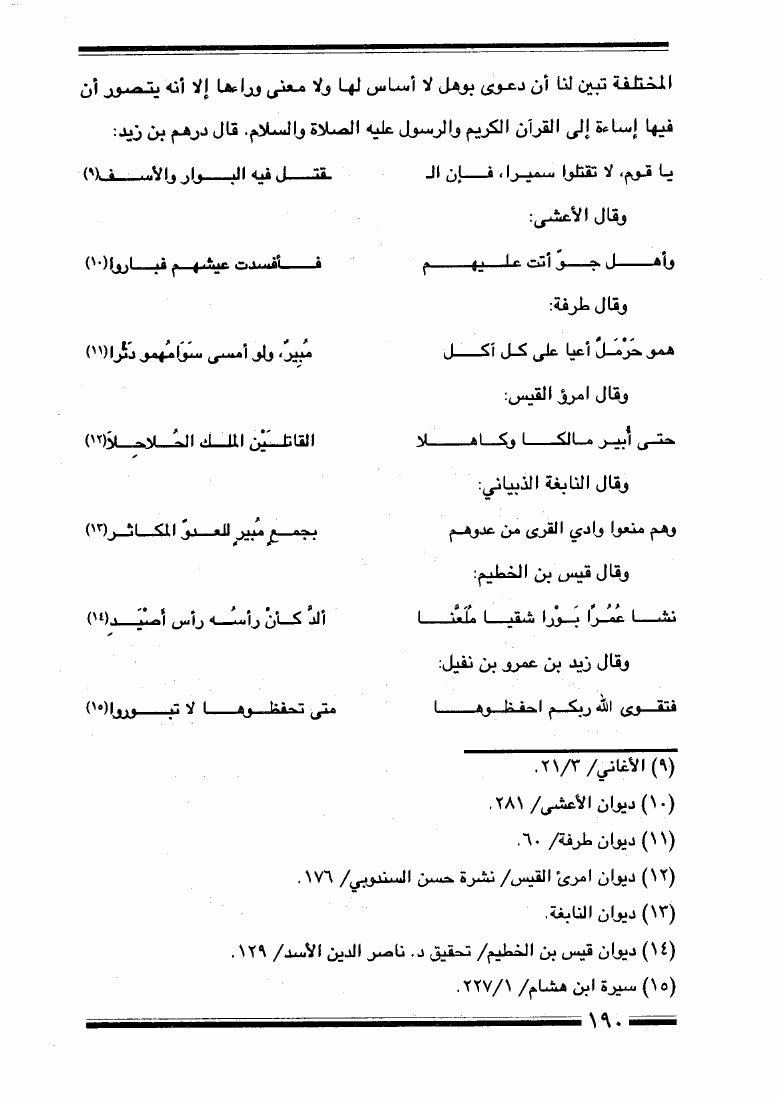 المختلفة تبين لنا أن دعوى بوهل لا أساس لها ولا معنى وراءها إلا أنه يتصور أن
فيها إساءة إلى القرآن الكريم والرسول عليه الصلاة والسلام. قال درهم بن زيد:
يا قوم، لا تقتلوا سميرا، فإن الـ ـقتل فيه البوار والأسف(٩)
وقال الأعشى:
وأهل جوّ أتت عليهم فأفسدت عيشهم فباروا(١٠)
وقال طرفة:
همو حَرْمَلٌ أعيا على كل آكل مُبِيرٌ، ولو أمسى سَوَامُهمو دَثْرا(١١)
وقال امرؤ القيس:
حتى أُبير مالكا وكاهلا القاتلَيْن الملك الحُلاحِلاَ(١٢)
وقال النابغة الذبياني:
وهم منعوا وادي القرى من عدوهم بجمعٍ مُبيرٍ للعدوّ المكاثر(١٣)
وقال قيس بن الخطيم:
نشا غُمُرًا بَوْرا شقيا مُلَعَّنا ألدَّ كأنْ رأسُه رأس أصْيَدِ(١٤)
وقال زيد بن عمرو بن نفيل:
فتقوى الله ربكم احفظوها متى تحفظوها لا تبوروا(١٥)
(٩) الأغاني/ ٢١/٣.
(١٠) ديوان الأعشى/ ٢٨١.
(١١) ديوان طرفة/ ٦٠.
(١٢) ديوان امرئ القيس/ نشرة حسن السندوبي/ ١٧٦.
(١٣) ديوان النابغة.
(١٤) ديوان قيس بن الخطيم/ تحقيق د. ناصر الدين الأسد/ ١٢٩.
(١٥) سيرة ابن هشام/ ٢٢٧/١.
١٩٠